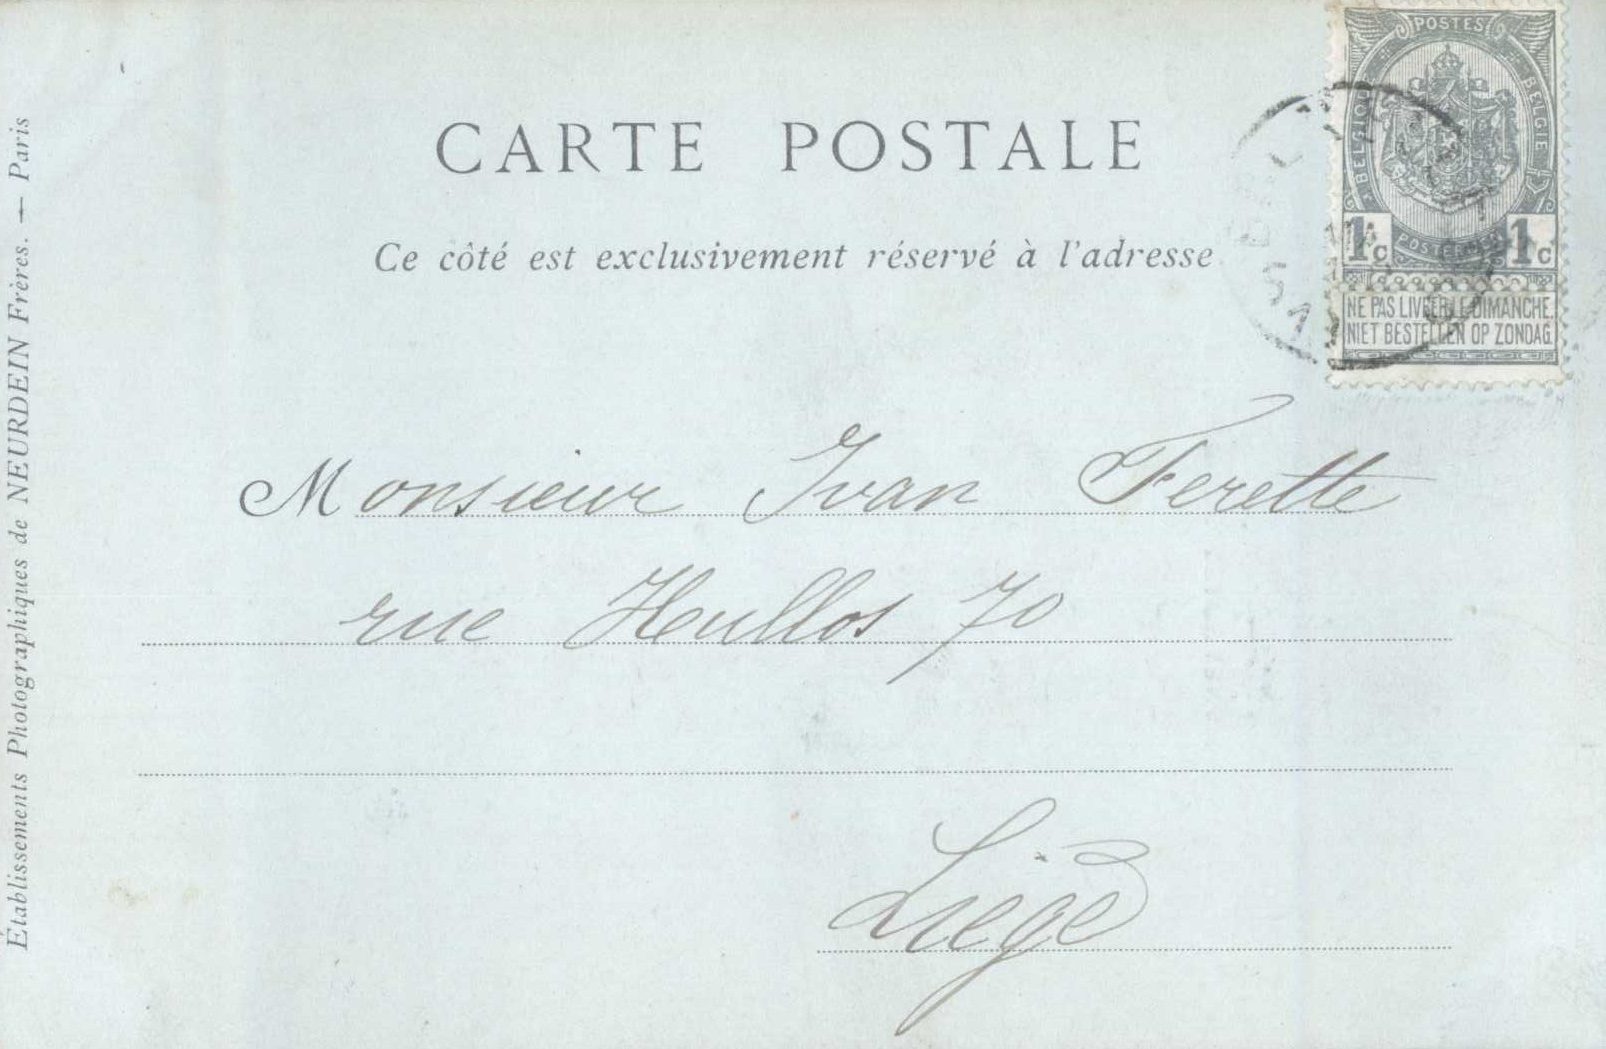 CARTE POSTALE
Ce côté est exclusivement réservé à l'adresse
POSTES
BELGIQUE
BELGIE
1c
1c
NE PAS LIVRER LE DIMANCHE.
NIET BESTELLEN OP ZONDAG
Monsieur Ivan Ferette
rue Hullos 70
Liège
Établissements Photographiques de NEURDEIN Frères. — Paris